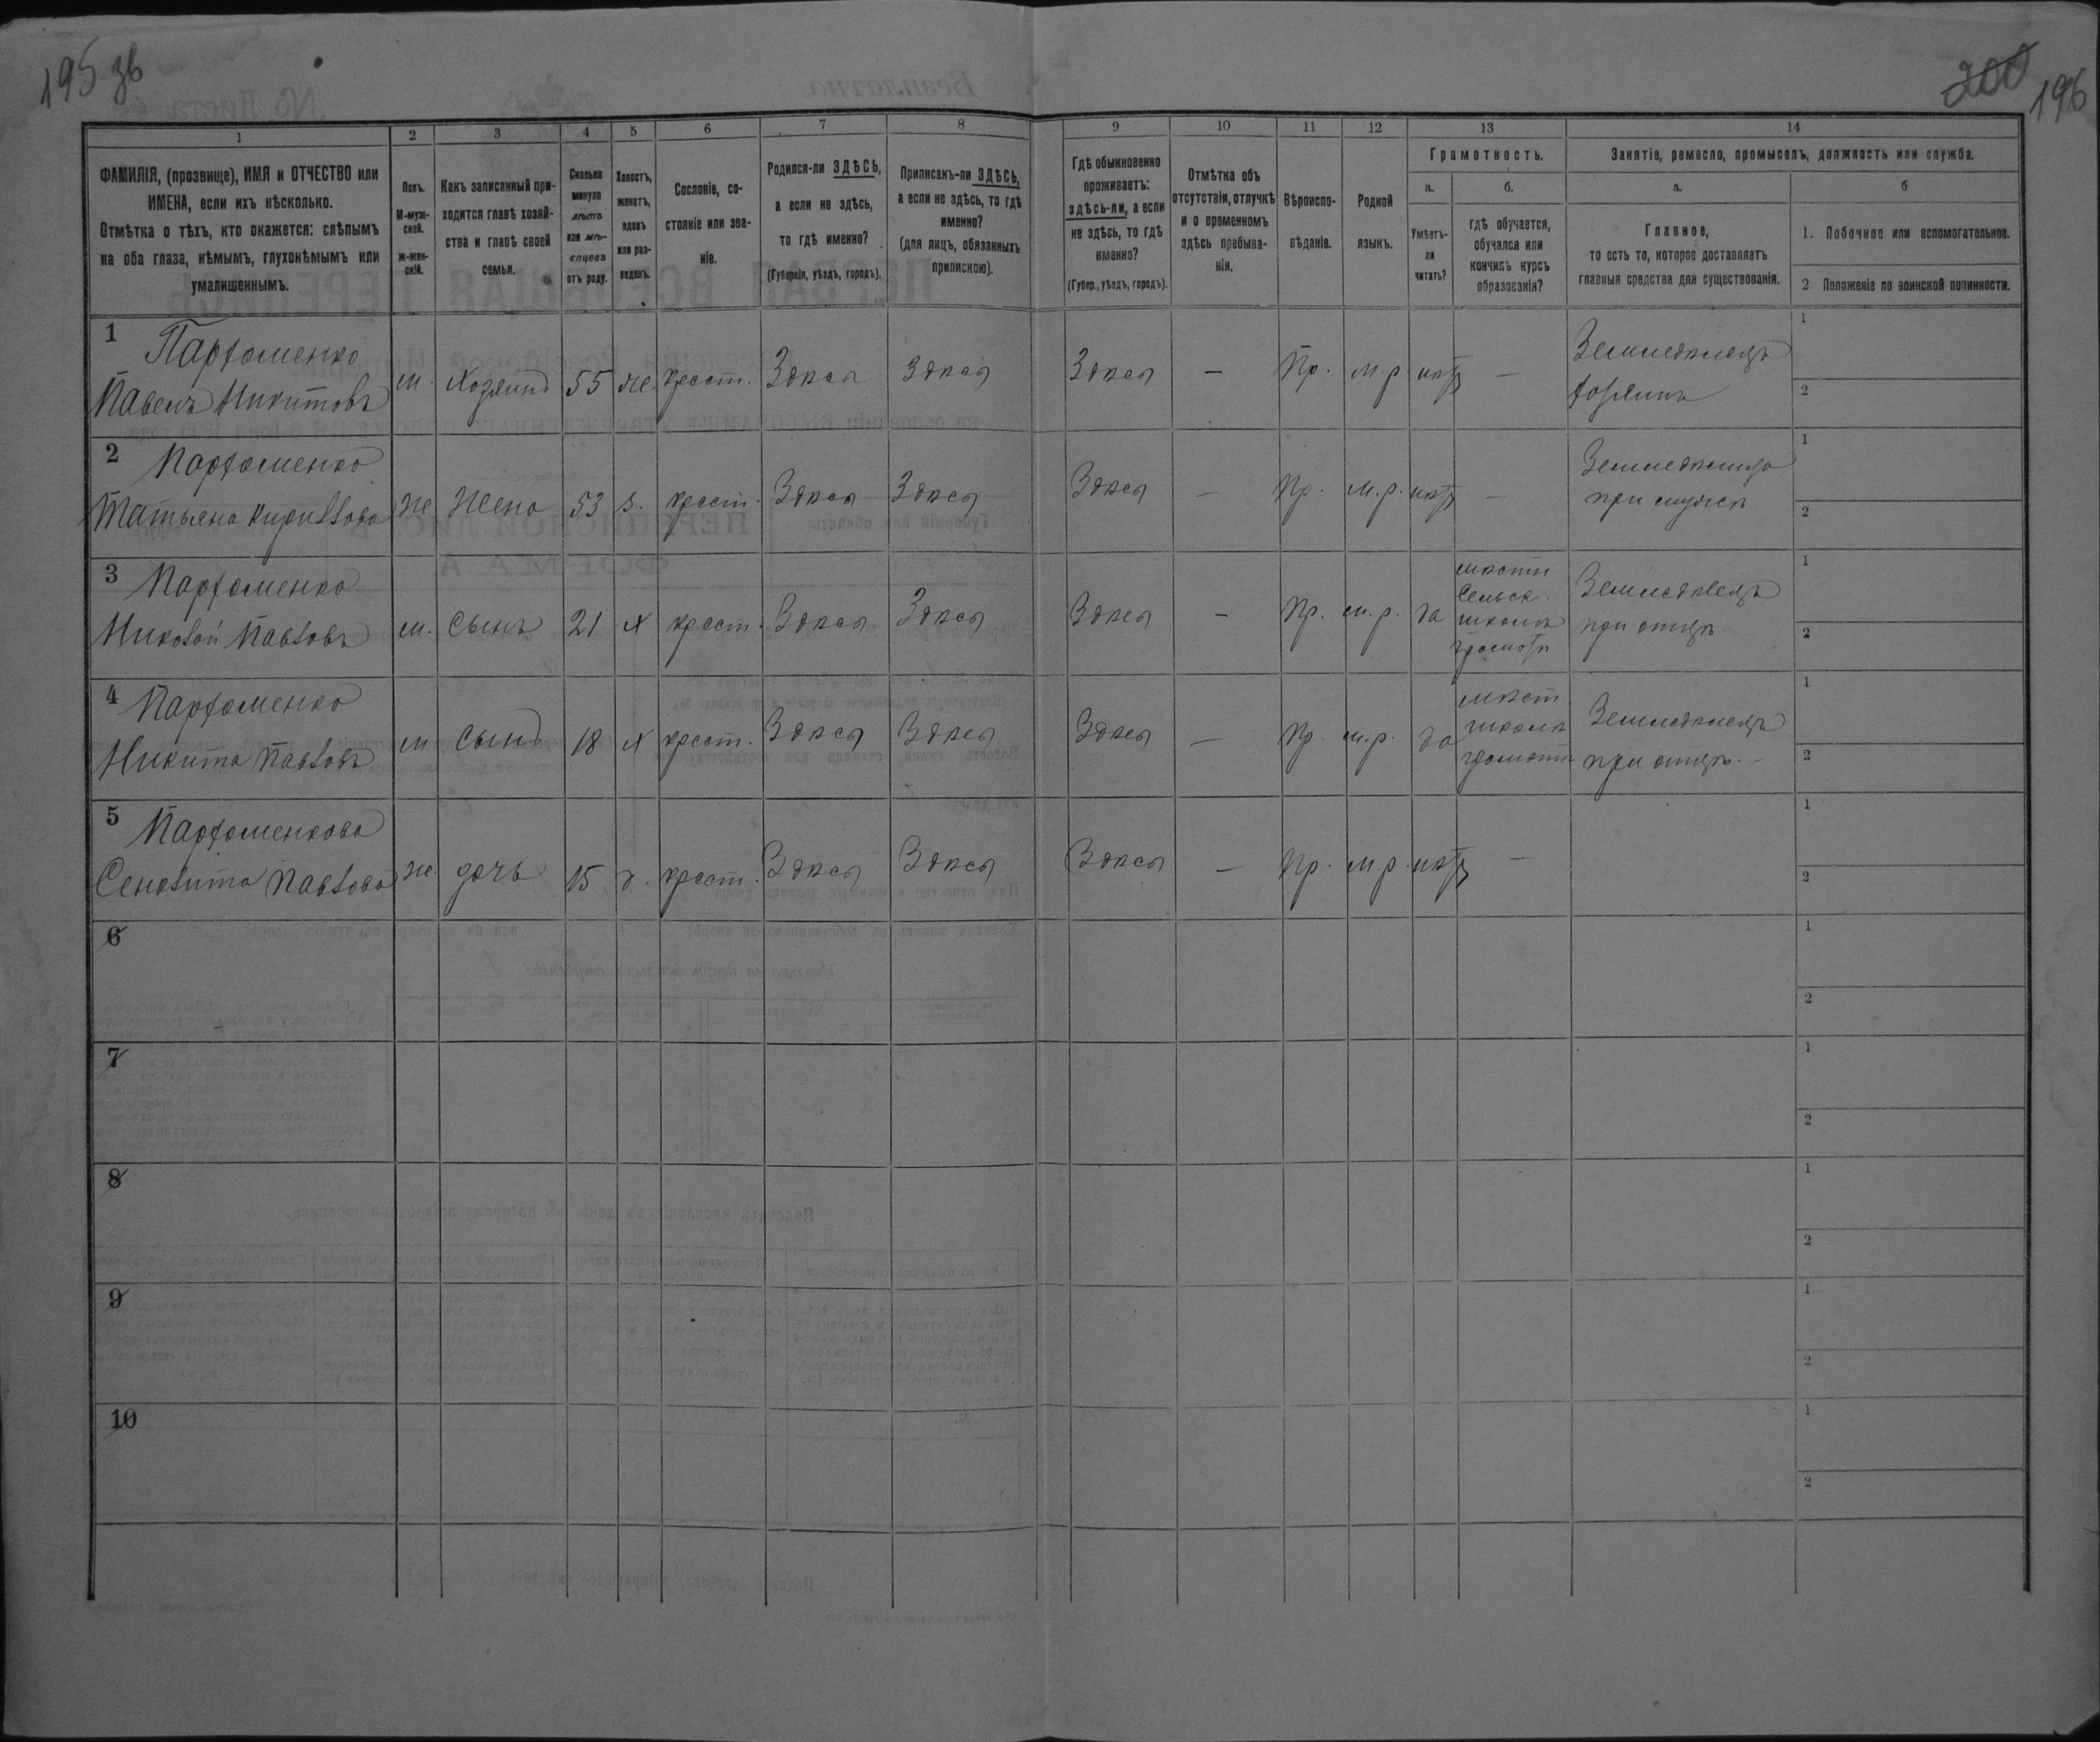 195 зв
200 196
1 2 3 4 5 6 7 8 9 10 11 12 13 14
ФАМИЛІЯ, (прозвище), ИМЯ и ОТЧЕСТВО или
ИМЕНА, если ихъ нѣсколько.
Отмѣтка о тѣхъ, кто окажется: слѣпымъ
на оба глаза, нѣмымъ, глухонѣмымъ или
умалишеннымъ.
Полъ.
М-муж-
ской.
ж-жен-
скій.
Какъ записанный при-
ходится главѣ хозяй-
ства и главѣ своей
семьи.
Сколько
минуло
лѣтъ
или мѣ-
сяцевъ
отъ роду.
Холостъ,
женатъ,
вдовъ
или раз-
веденъ.
Сословіе, со-
стояніе или зва-
ніе.
Родился-ли ЗДѢСЬ,
а если не здѣсь,
то гдѣ именно?
(Губернія, уѣздъ, городъ).
Приписанъ-ли ЗДѢСЬ,
а если не здѣсь, то гдѣ
именно?
(для лицъ, обязанныхъ
припискою).
Гдѣ обыкновенно
проживаетъ:
здѣсь-ли, а если
не здѣсь, то гдѣ
именно?
(Губер., уѣздъ, городъ).
Отмѣтка объ
отсутствіи, отлучкѣ
и о временномъ
здѣсь пребыва-
ніи.
Вѣроиспо-
вѣданіе.
Родной
языкъ.
Грамотность.
а.
Умѣетъ-
ли
читать?
б.
гдѣ обучается,
обучался или
кончилъ курсъ
образованія?
Занятіе, ремесло, промыселъ, должность или служба.
а.
Главное,
то есть то, которое доставляетъ
главныя средства для существованія.
б
1. Побочное или вспомогательное.
2 Положеніе по воинской повинности.
1 Парфоменко
Павелъ Никитовъ м. Хозяинъ 55 же. крест. Здѣся Здѣся Здѣся — Пр. м.р. нѣтъ —
Земледѣлецъ
хозяинъ
1
2
2 Парфоменко
Татьяна Кирилова же Жена 53 з. крест. Здѣся Здѣся Здѣся — Пр. м.р. нѣтъ —
Земледѣлица
при мужѣ
1
2
3 Парфоменко
Николай Павловъ м. Сынъ 21 х крест. Здѣся Здѣся Здѣся — Пр. м.р. да
сельск.
школѣ
Земледѣлецъ
при отцѣ
1
2
4 Парфоменко
Никита Павловъ м Сынъ 18 х крест. Здѣся Здѣся Здѣся — Пр м.р. да
школѣ
Земледѣлецъ
при отцѣ. —
1
2
5 Парфоменкова
Сенклита Павлова же. дочь 15 д. крест. Здѣся Здѣся Здѣся — Пр. м.р. нѣтъ —
1
2
6
1
2
7
1
2
8
1
2
9
1
2
10
1
2